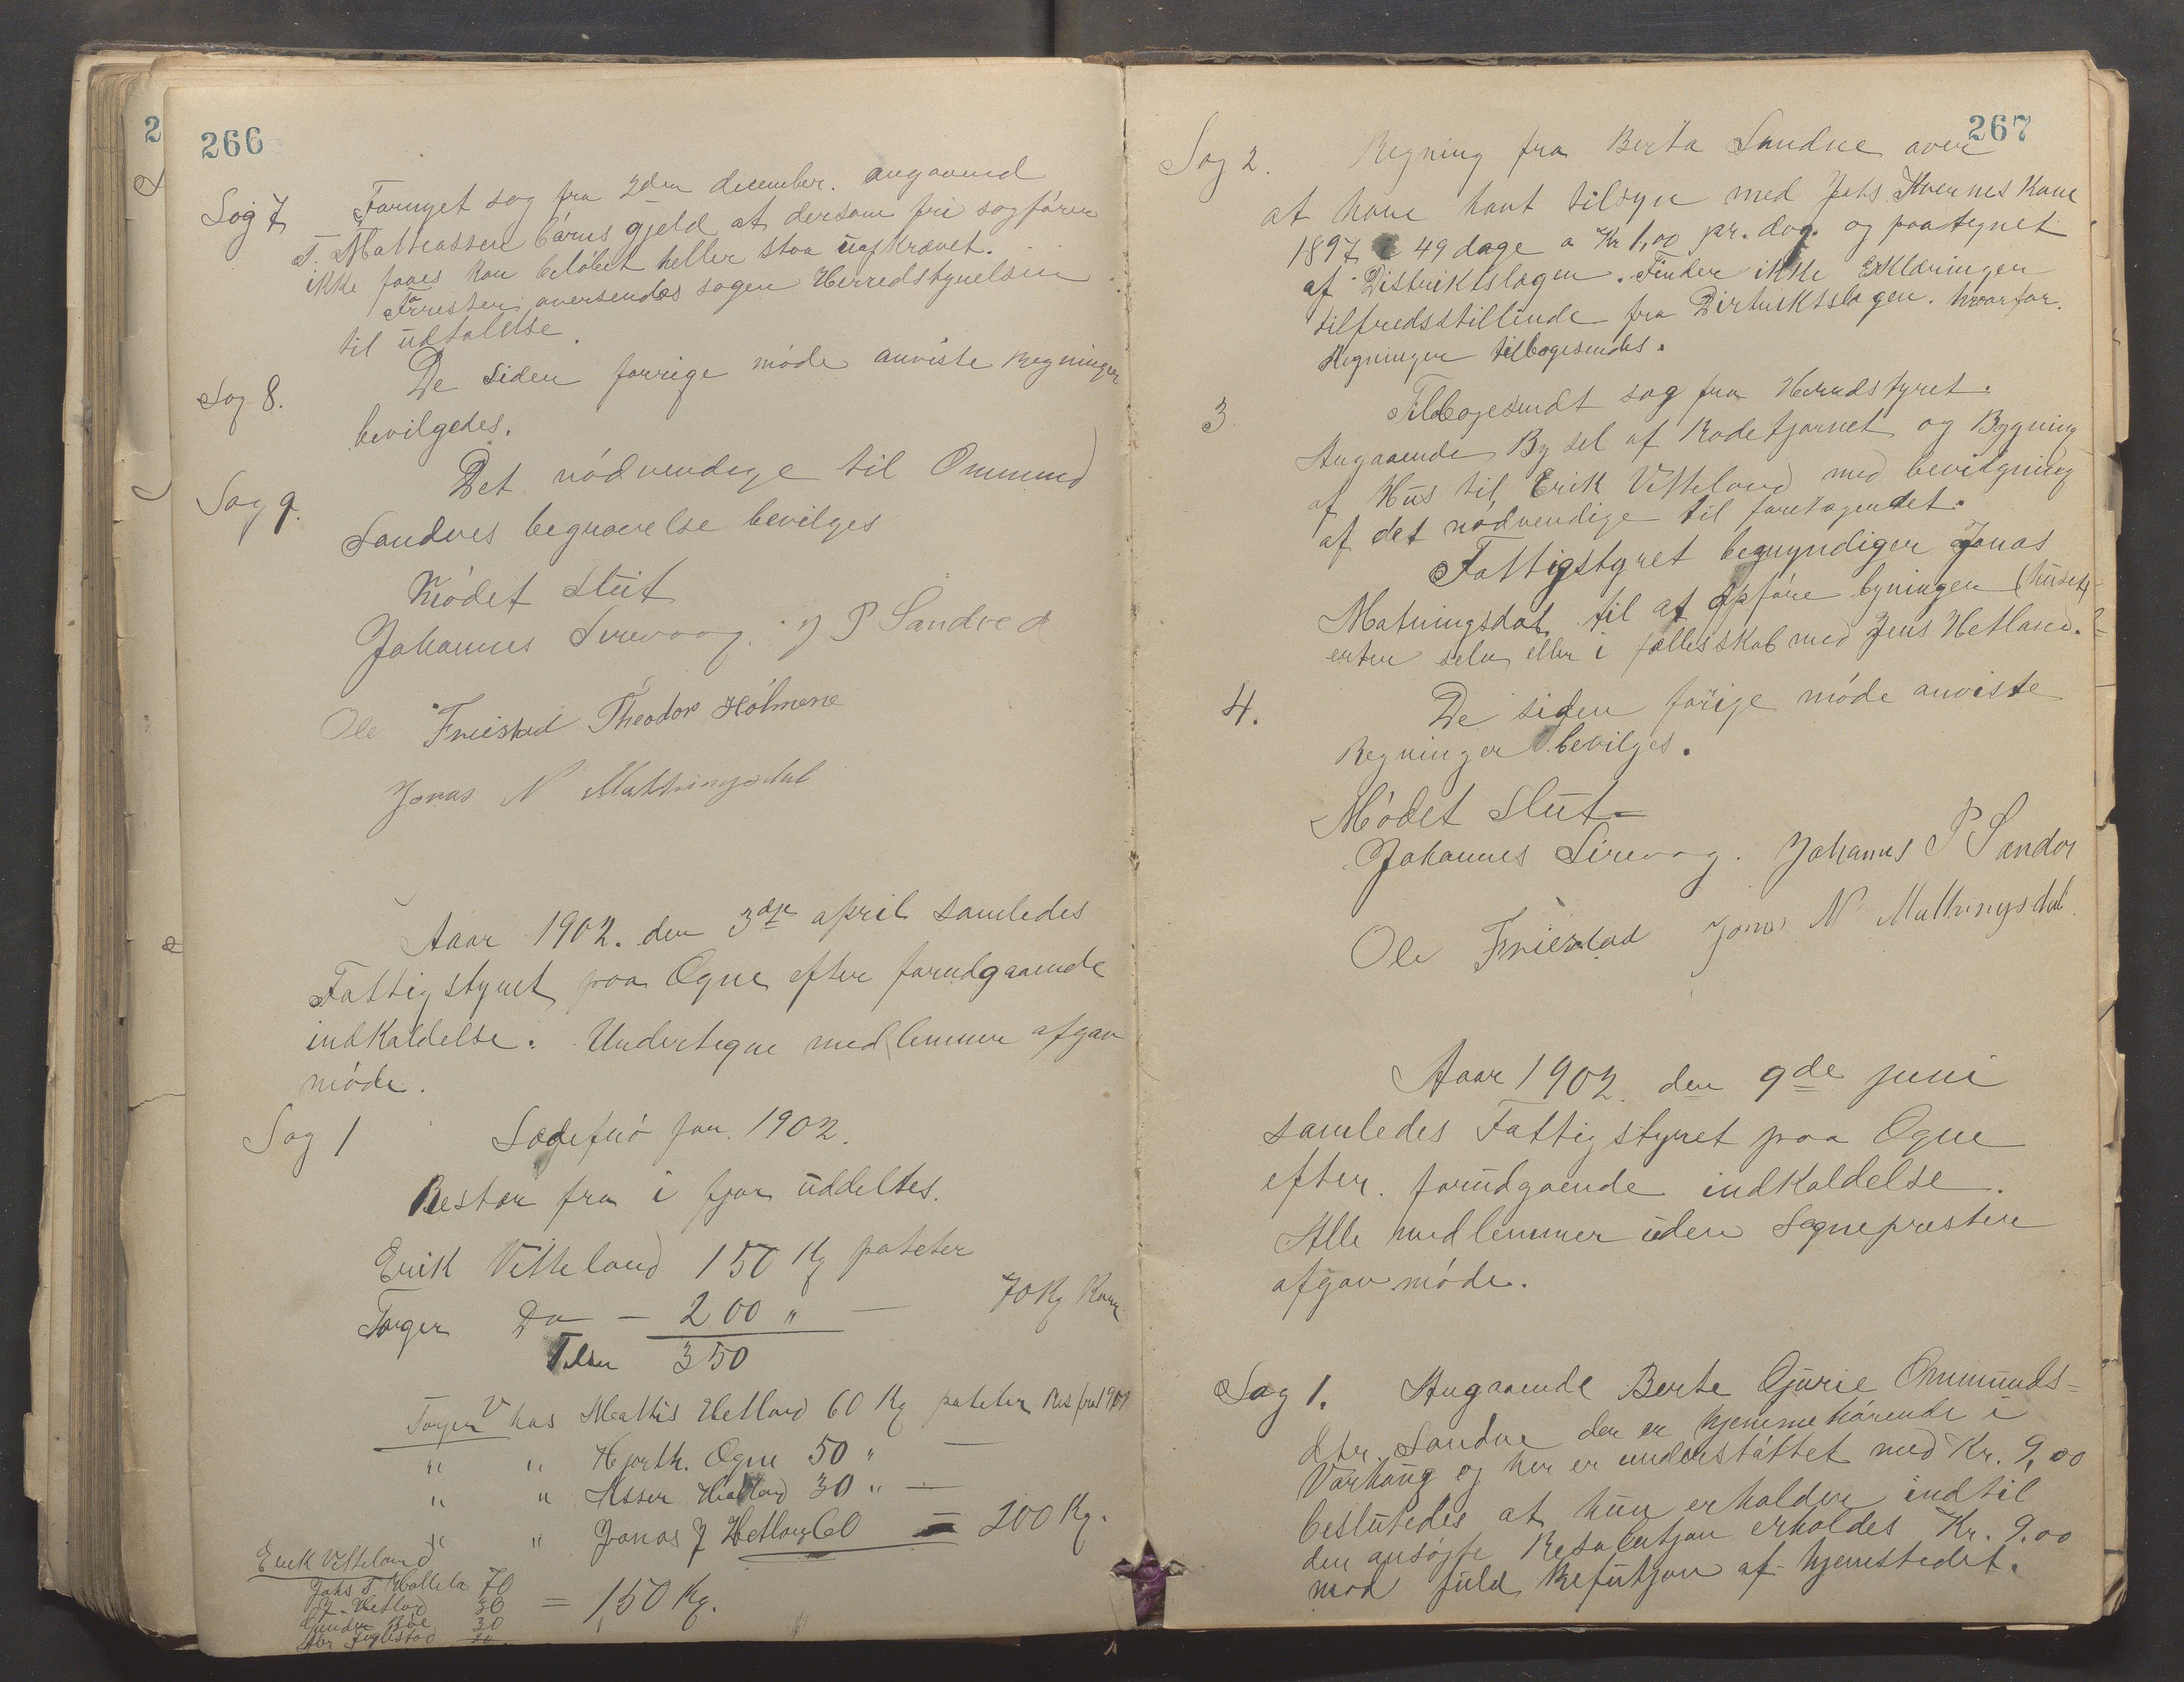 266
Sag 7 Fornyet sag fra 2den december. angaaend
T. Mathiassen bárns gjeld at dersom fri sagfórer
ikke faaes kan belóbet heller staa uafkrævet.
Forresten oversendes sagen Herredstyrelsen
til udtalelse.
Sag 8. De siden forrige móde anviste Regninger
bevilgedes.
Sag 9. Det nódvendige til Ommund
Sandves begravelse bevilges
Módet slut
Johannes Sirevaag. J P Sandve
Ole Freistad Theodor Holmene
Jonas N Matningsdal
Aaar 1902. den 3die april samledes
Fattigstyret paa Ogne efter forudgaaende
indkaldelse. Undertegne medlemmer afgav
móde.
Sag 1 Sædefró for 1902.
Restar fra i fjor uddeltes.
Erik Vetteland 150 Kg poteter
Torger Do — 200 " — 70 Kg Korn
Tilsm 350
Torger V hos Mattis Hetland 60 Kg poteter Res fra 1901
" " Hjorth. Ogne 50 " —
" " Asser Hetland 30 " —
" " Jonas J Hetland 60 = 200 Kg.
Erik Vetteland
Johs T 70
J. Hetland 30 = 150 Kg.
Gunder Bóe 30
Fuglestad 20
267
Sag 2. Regning fra Berta Sandve over
at have havt tilsyn med Johs. Kvernes Kone
1897 49 dage a Kr 1,00 pr. dag. og paategnet
af Distriktslægen. Finder ikke Erklæringen
tilfredsstillende fra Dirtriktslægen. hvorfor
Regningen tilbagesendes.
3. Tilbagesendt sag fra Herredstyret.
Angaaende Bygsel af Rodetjernet og Bygning
af Hus til Erik Vetteland med bevilgning
af det nódvendige til foretagendet.
Fattigstyret begmyndiger Jonas
Matningsdal til at opfóre bygningen (huset)
enten selv eller i fællesskab med Jens Hetland.
4. De siden forige móde anviste
Regninger bevilges.
Módet Slut
Johannes Sirevaag. Johannes P Sandve
Ole Freistad Jonas N Matningsdal
Aaar 1902. den 9de juni
samledes Fattigstyret paa Ogne
efter. forudgaende indkaldelse.
Alle medlemmer uden Sognepresten
afgav móde.
Sag 1. Angaaende Berte Gurie Ommunds-
dtr. Sandve der er hjemmehórende i
Varhaug og her er understóttet med Kr. 9,00
beslutedes at hun erholder indtil
den ansógte Resolutjon erholdes Kr. 9.00
mod fuld Refutjon af hjemstedet.